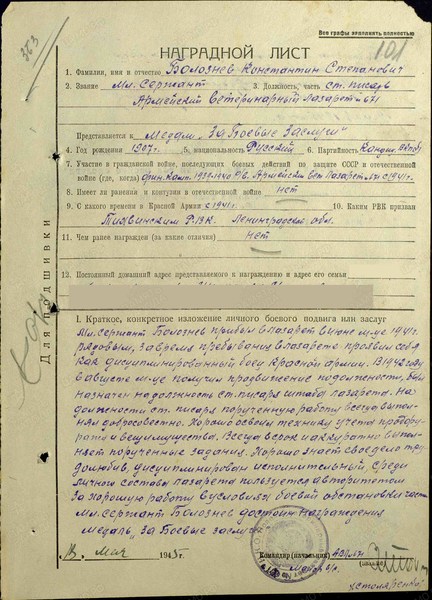 Все графы заполнять полностью
363
101
НАГРАДНОЙ ЛИСТ
1. Фамилия, имя и отчество Болознев Константин Степанович
2. Звание Мл. Сержант 3. Должность, часть Ст. писарь
Армейский Ветеринарный Лазарет № 671
Представляется к Медали „За Боевые Заслуги"
4. Год рождения 1907 г. 5. национальность Русский 6. Партийность Кандид. ВКП(б)
7. Участие в гражданской войне, последующих боевых действиях по защите СССР и отечественной
войне (где, когда) фин. камп. 1939-1940 Армейский вет. Лазарет 671 с 1941 г.
8. Имеет ли ранения и контузии в отечественной войне нет
9. С какого времени в Красной Армии с 1941 г. 10. Каким РВК призван
Тихвинским РВК. Ленинградской обл.
11. Чем ранее награжден (за какие отличия) нет
12. Постоянный домашний адрес представляемого к награждению и адрес его семьи
Для подшивки
I. Краткое, конкретное изложение личного боевого подвига или заслуг
Мл. сержант Болознев прибыл в лазарет в июне м-це 1941 г.
рядовым, за время пребывания в лазарете проявил себя
как дисциплинированный боец Красной армии. В 1942 году
в августе м-це получил продвижение по должности, был
назначен на должность ст. писаря штаба лазарета. На
должности ст. писаря порученную работу всегда выпол
нял добросовестно. Хорошо освоил технику учета
и вещимущества. Всегда верно и аккуратно выпол
няет порученные задания. Хорошо знает свое дело тру
долюбив, дисциплинирован исполнительный, среди
личного состава лазарета пользуется авторитетом
За хорошую работу в условиях боевой обстановки
Мл. Сержант Болознев достоин награждения
медаль „За Боевые заслуги
Мая 1945 г.
Командир (начальник) АВЛ
Майор в/с